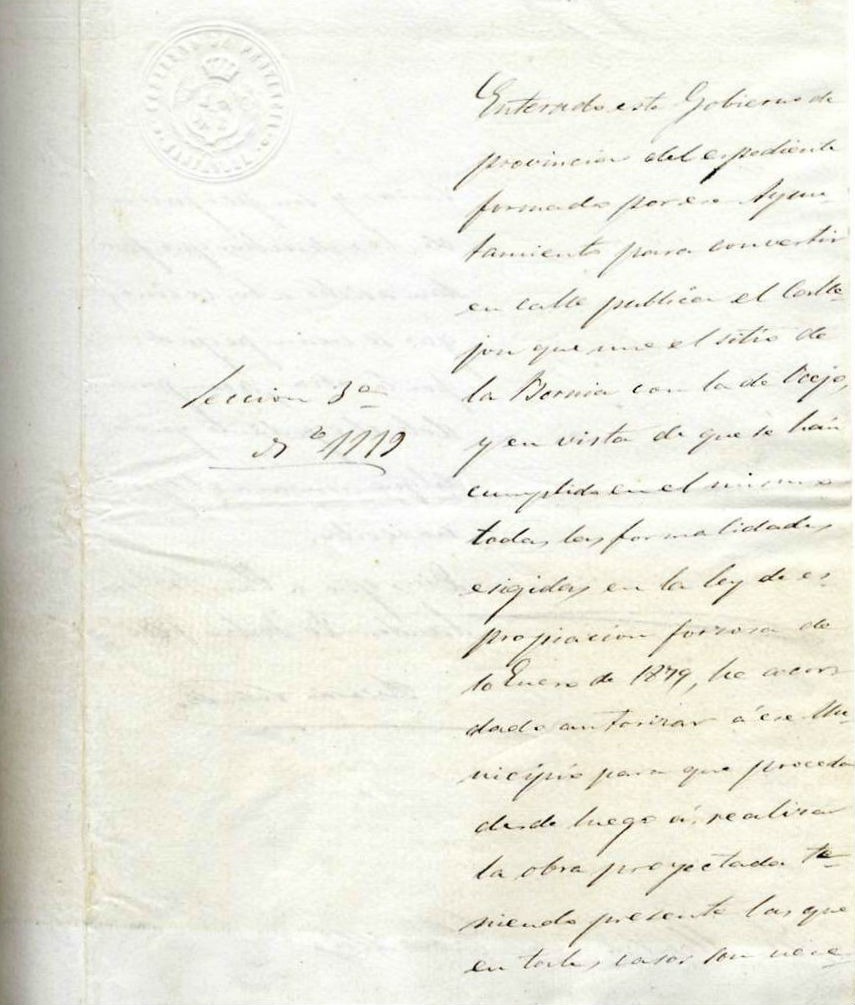 Sección 3a
No 1119
Enterado este Gobierno de
provincia del espediente
formado por ese Ayun-
tamiento para convertir
en calle publica el Calle-
jon que une el sitio de
la Bornia con la de
y en vista de que se han
cumplido en el mismo
todas las formalidades
esigidas en la ley de es-
propiacion forzosa de
10 Enero de 1879, he acor-
dado autorizar á ese Mu-
nicipio para que proceda
desde luego á realizar
la obra proyectada te-
niendo presente las que
en tales casos son nece-